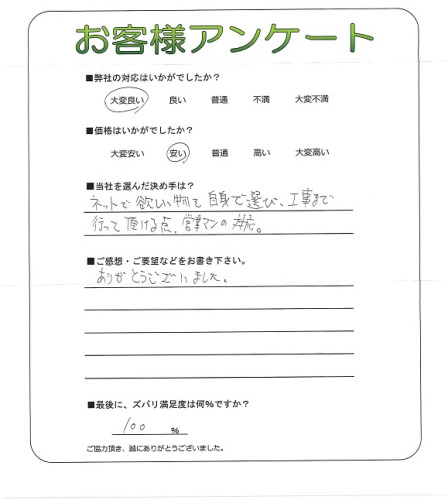 お客様アンケート
■弊社の対応はいかがでしたか?
大変良い 良い 普通 不満 大変不満
■価格はいかがでしたか?
大変安い 安い 普通 高い 大変高い
■当社を選んだ決め手は?
ネットで欲しい物も自身で選び、工事まで
行って頂ける点、営業マンの対応。
■ご感想・ご要望などをお書き下さい。
ありがとうございました。
■最後に、ズバリ満足度は何%ですか?
100 %
ご協力頂き、誠にありがとうございました。